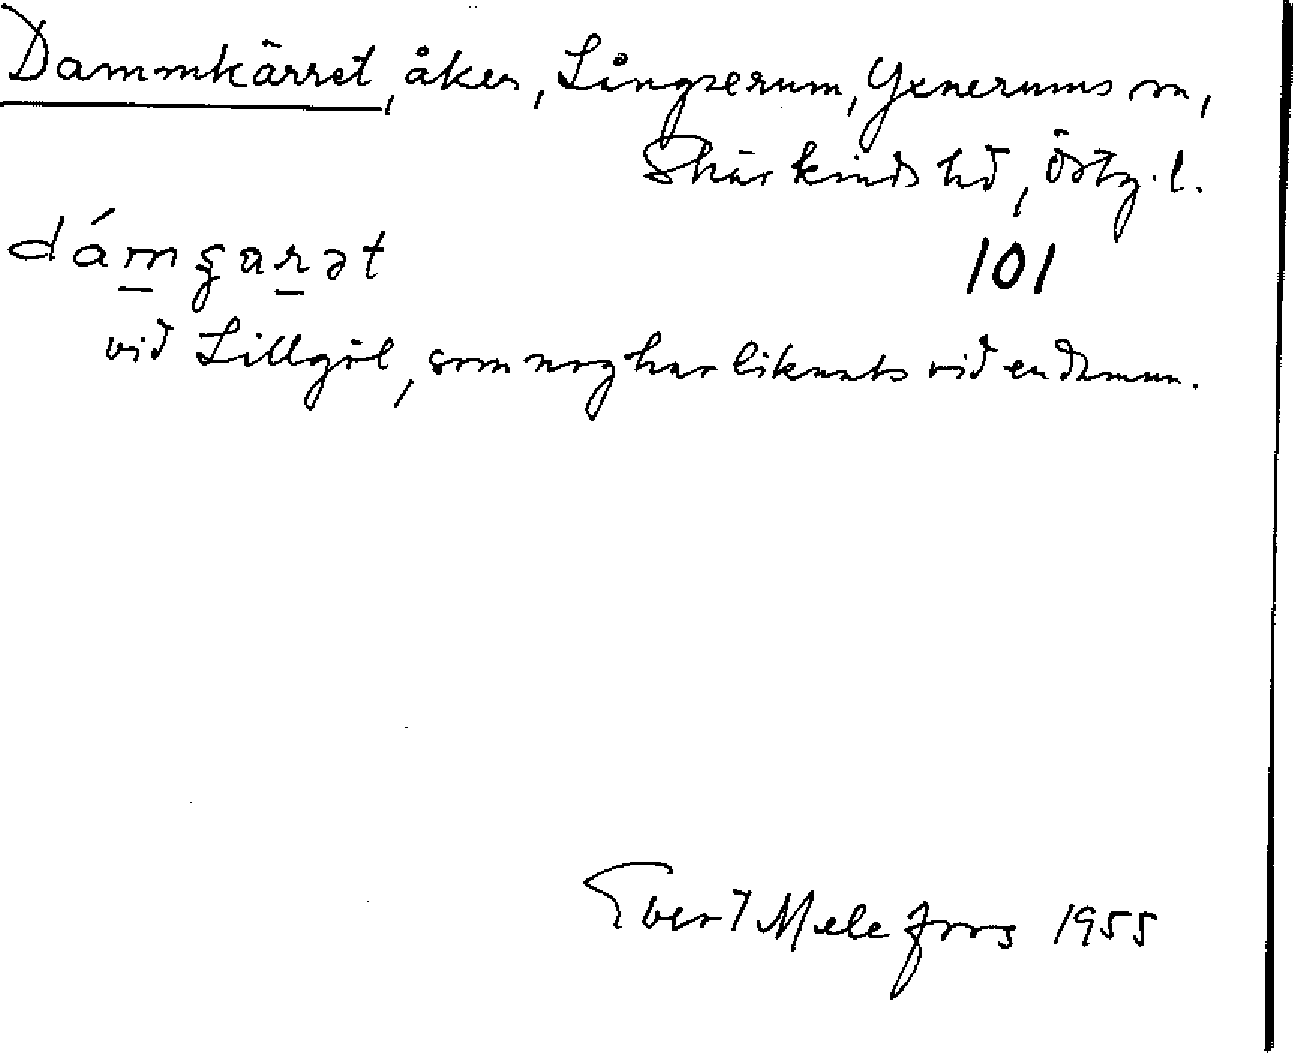 Dammkärret, åker, Långserum, Yxnerums sn,
Skärkinds hd, Östg.l.
dámgarət 101
vid Lillgöl, som nog har liknats vid en damm.
Evert Melefors 1955